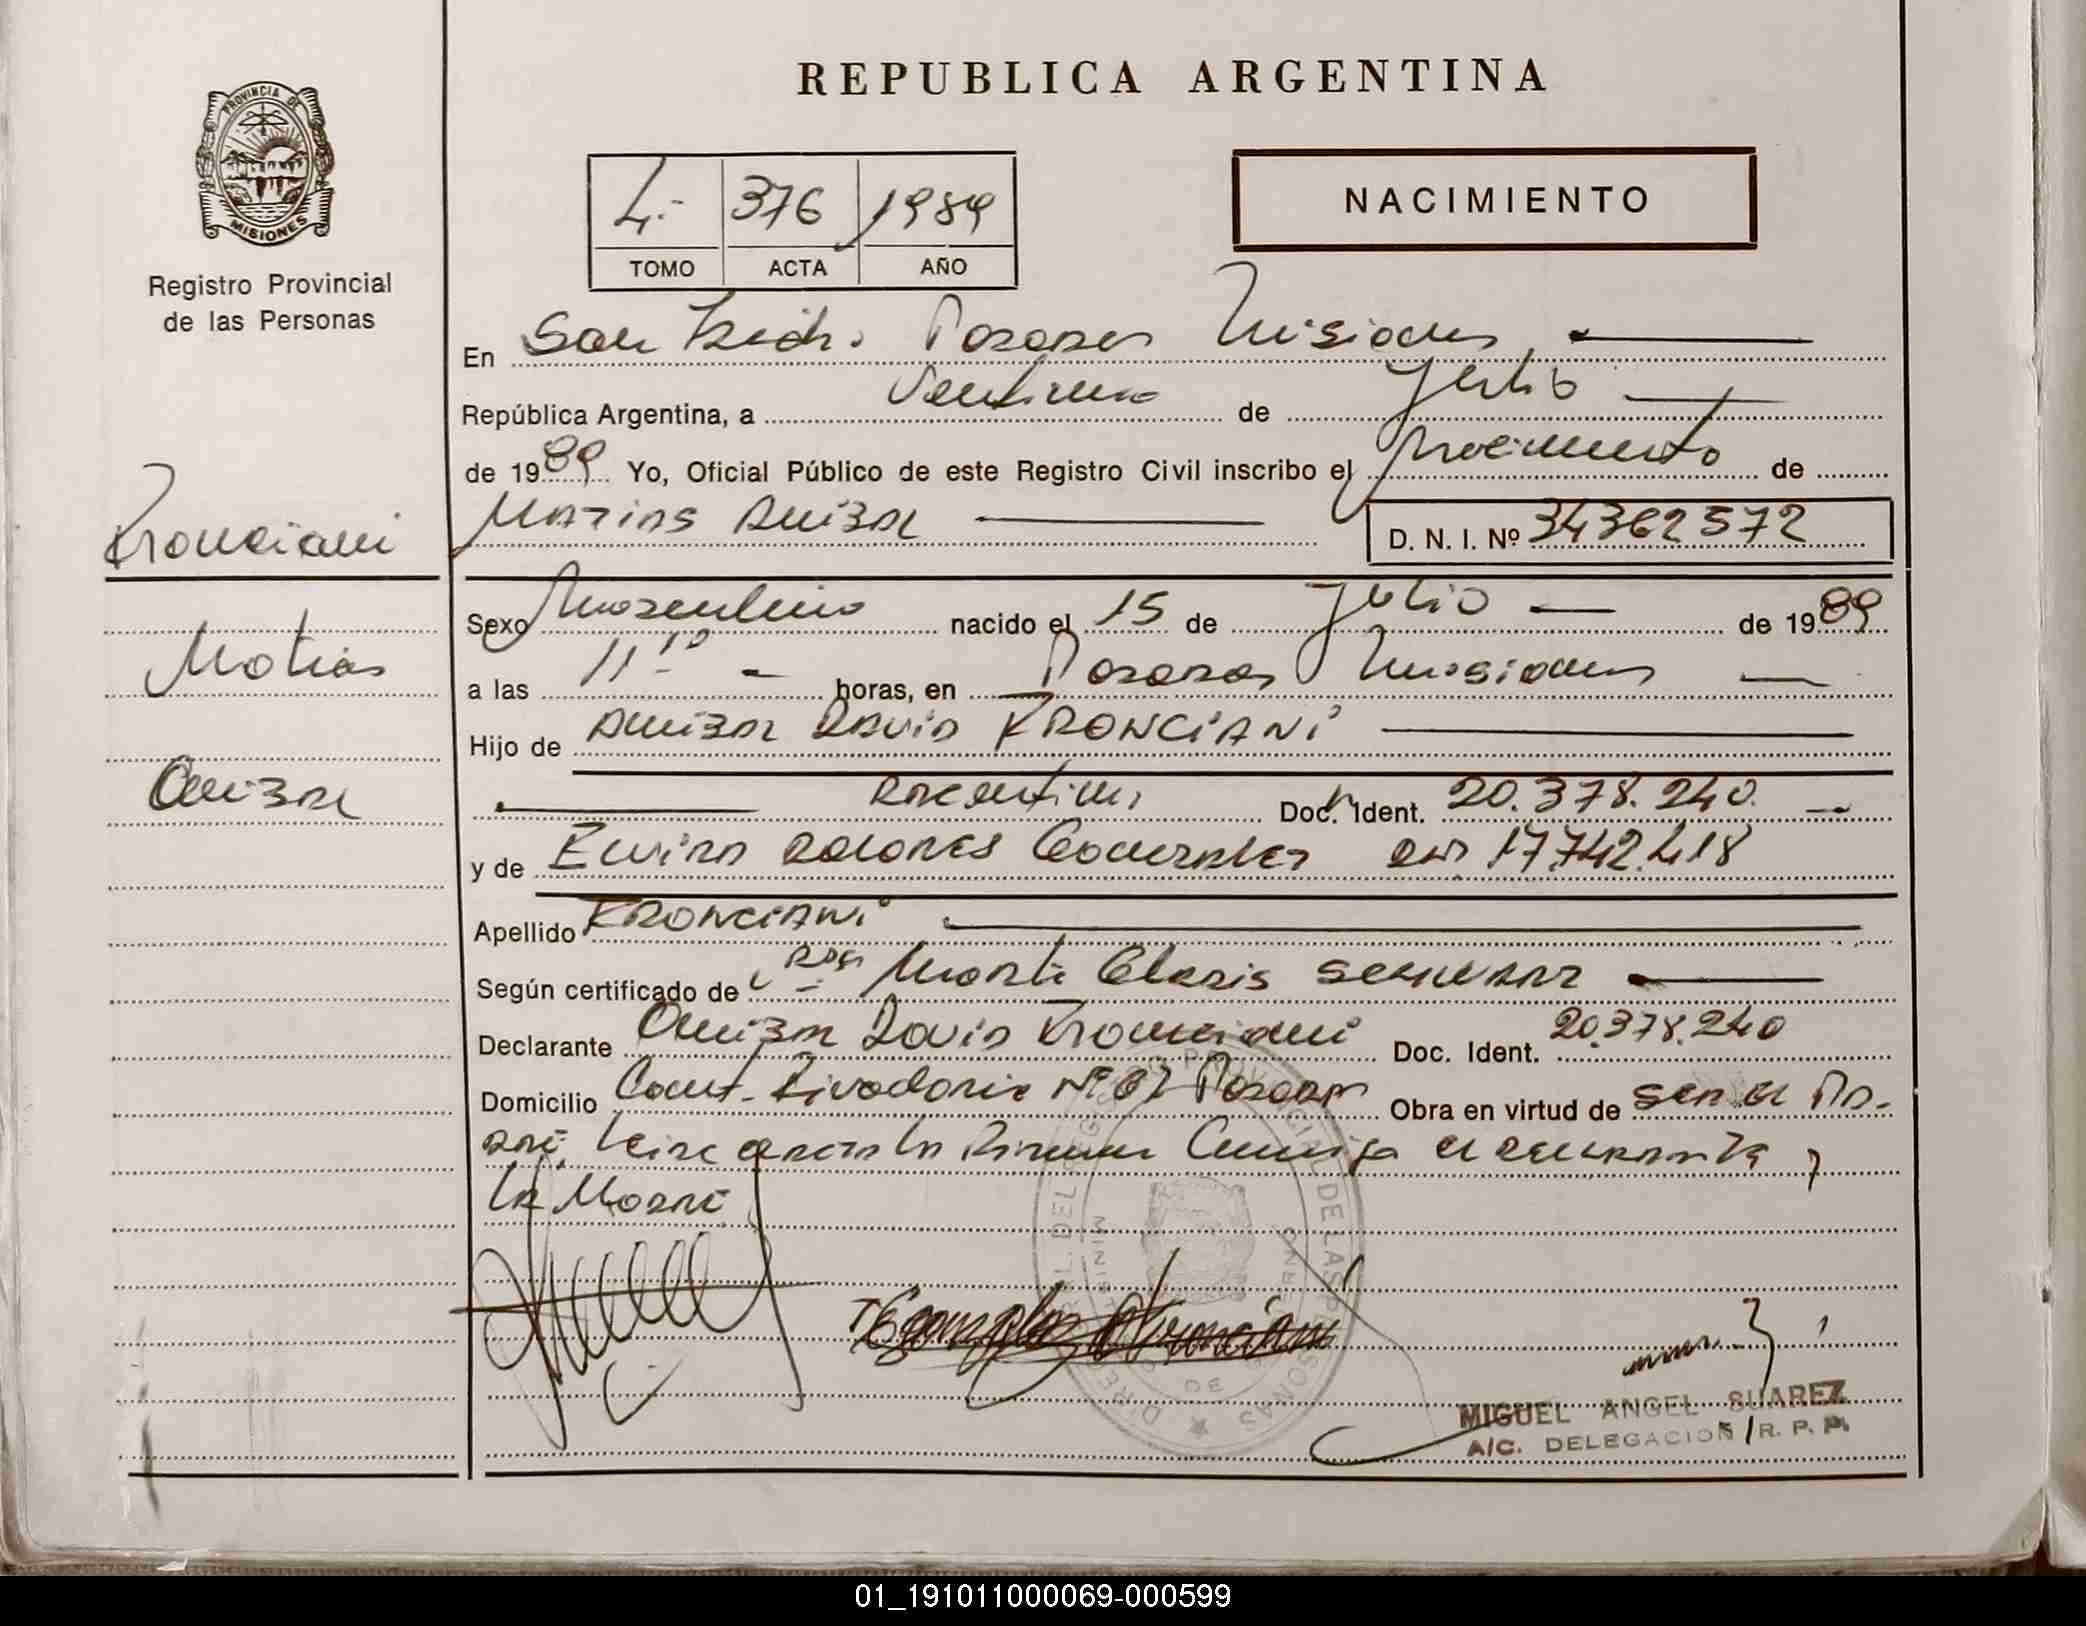 REPUBLICA ARGENTINA
PROVINCIA DE
MISIONES
Registro Provincial
de las Personas
4.- 376 1989
TOMO ACTA AÑO
NACIMIENTO
En San Isidro. Posadas Misiones
República Argentina, a Veintiuno de Julio
de 1989 Yo, Oficial Público de este Registro Civil inscribo el nacimiento de
Kronciani
Matias Anibal D. N. I. Nº 34362572
Sexo Masculino nacido el 15 de Julio de 1989
Matias
a las 11 horas, en Posadas Misiones
Hijo de Anibal David KRONCIANI
Anibal
Argentino Doc. Ident. 20.378.240.
y de Elvira Dolores Gonzalez 17.742.418
Apellido KRONCIANI
Según certificado de Marta Gladis
Declarante Anibal David Kronciani Doc. Ident. 20.378.240
Domicilio Rivadavia Nº Posadas Obra en virtud de ser el Pa-
dre. Leida la Firman Conmigo el declarante y
la Madre
MIGUEL ANGEL SUAREZ
A/C. DELEGACION / R. P. P.
01_191011000069-000599